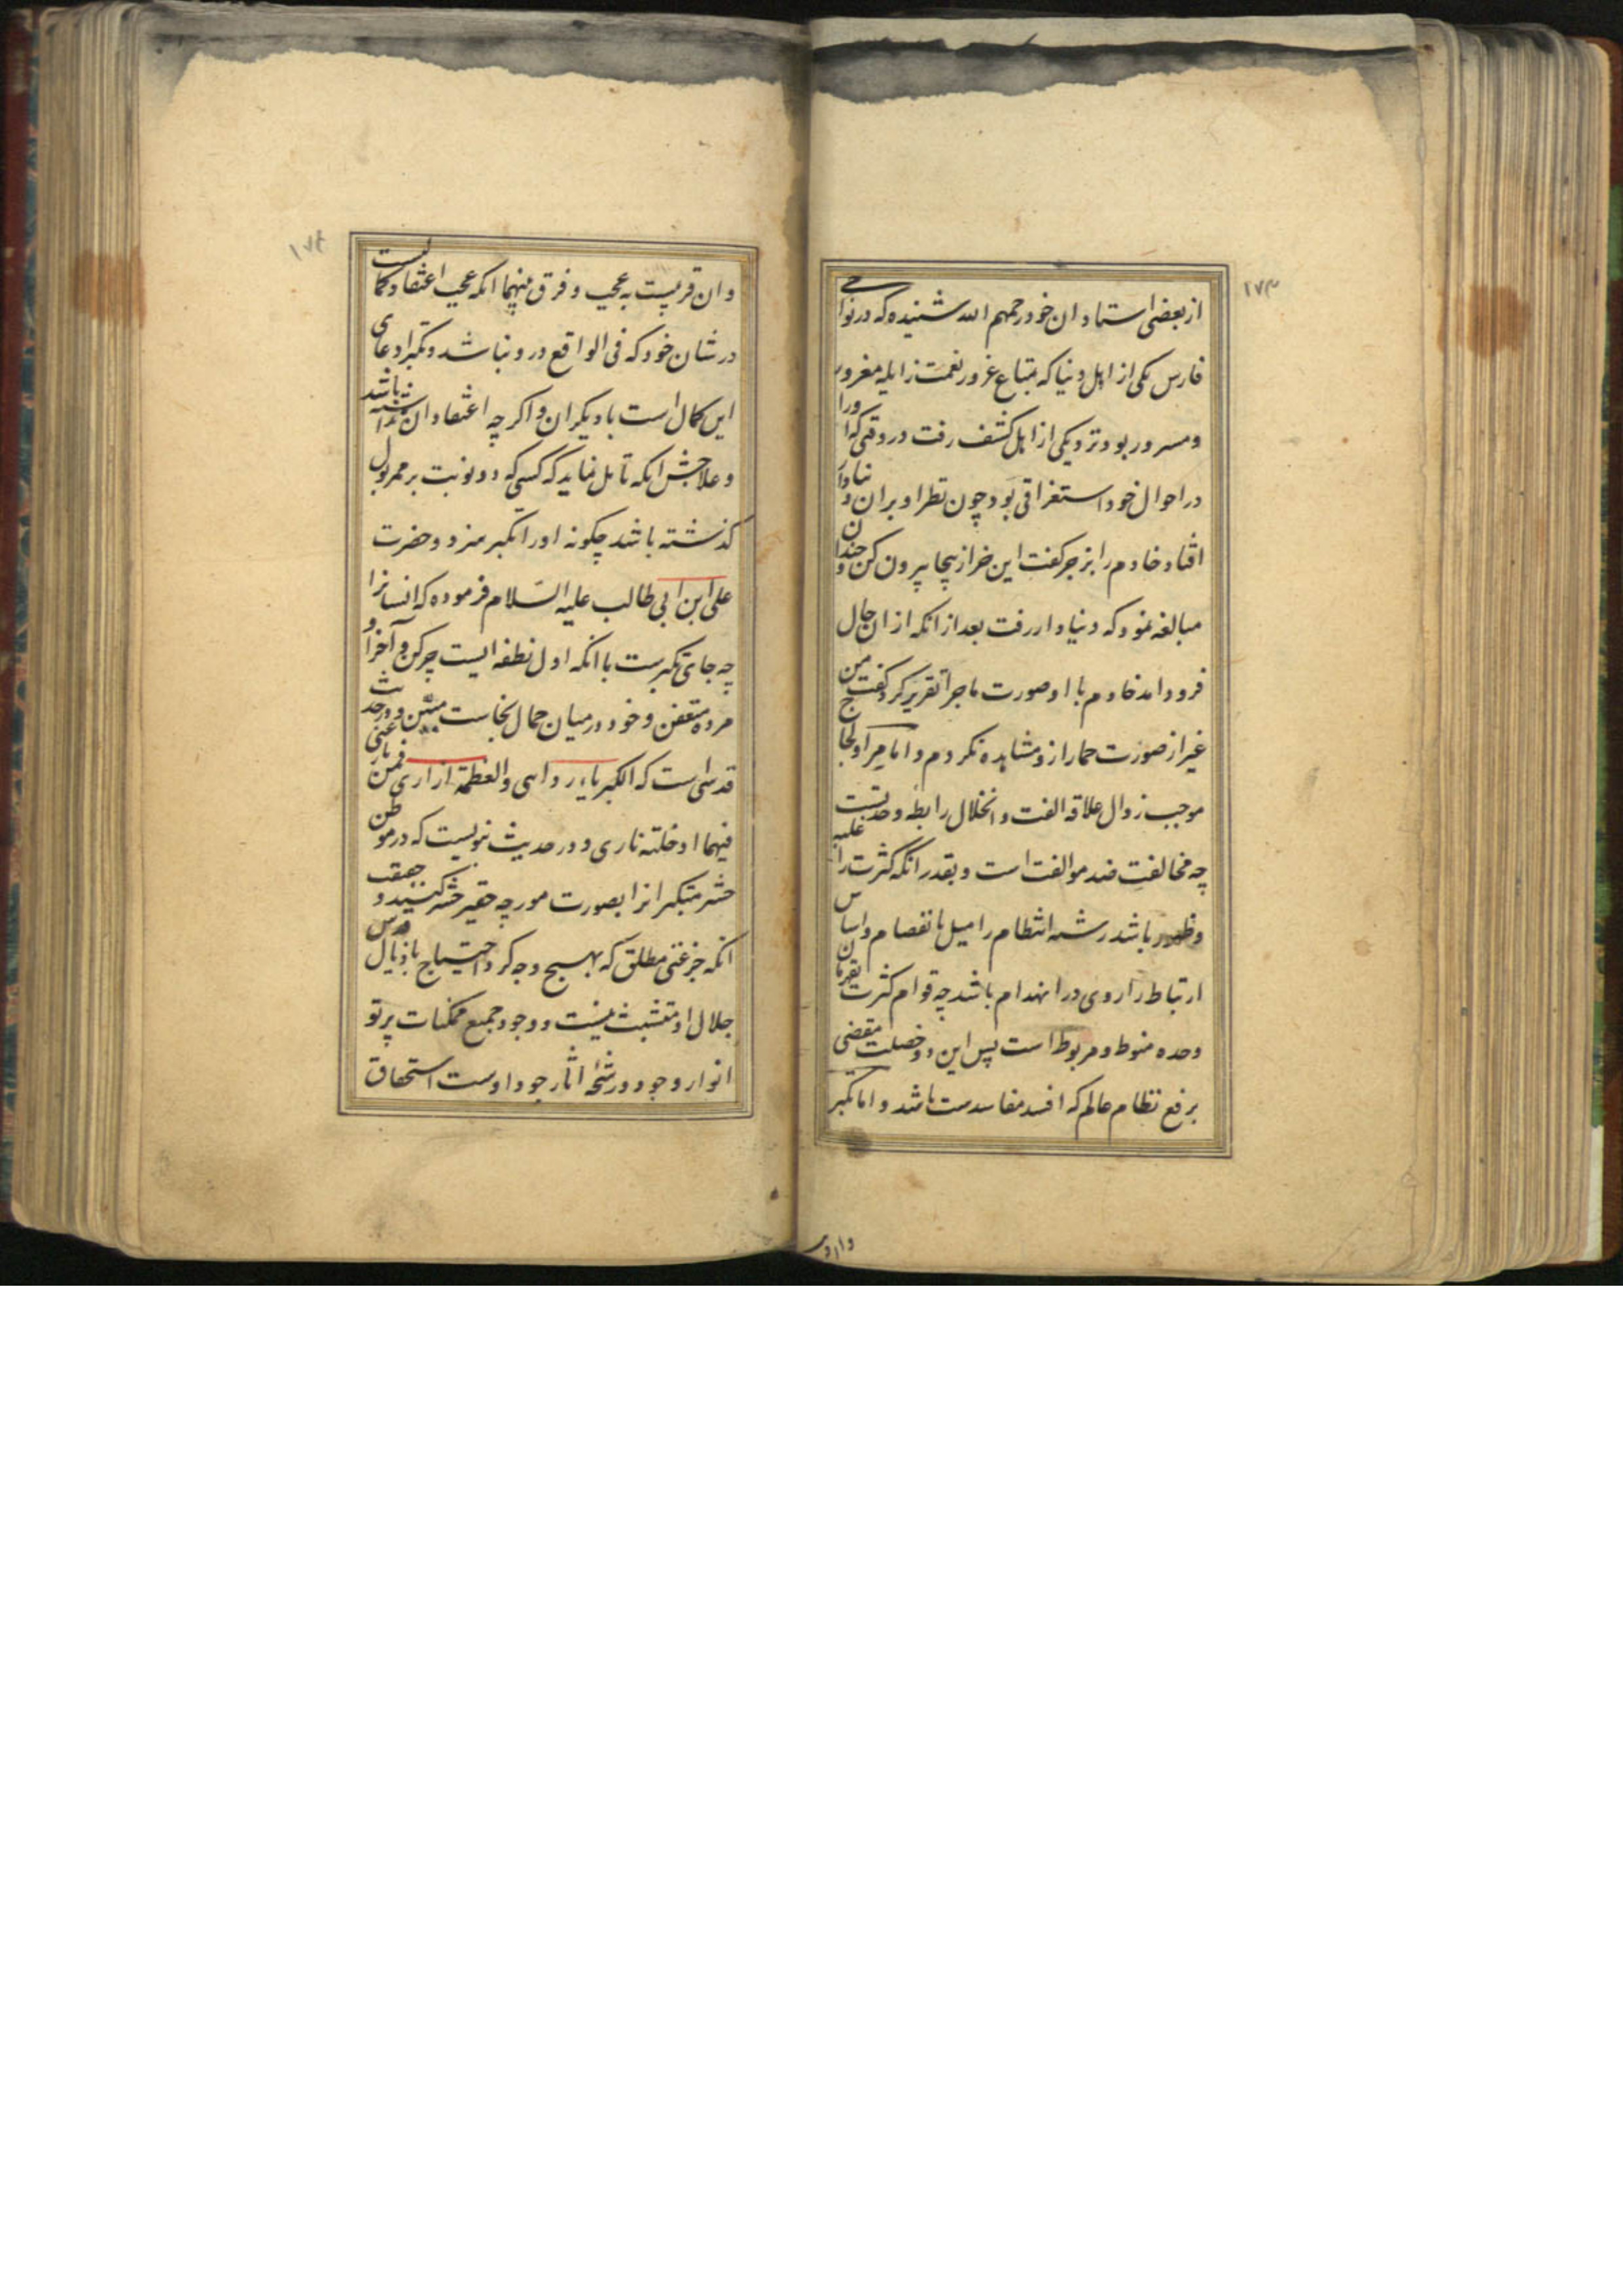 ۱۷۳
از بعضی استادان خود رحمهم الله شنیده که در نواحی
فارس یکی از اهل دنیا که بمتاع غرور نعمت زایله مغرور
و مسرور بود نزد یکی از اهل کشف رفت در وقتی که او را
در احوال خود استغراقی بود چون نظر او بران دنیادار
افتاد خادم را بزجر گفت این خر از پنجا بیرون کن و چندان
مبالغه نمود که دنیادار رفت بعد از انکه از ان حال
فرود امد خادم با او صورت ماجرا تقریر کرد گفت من
غیر از صورت حمار ازو مشاهده نکردم و اما مرا و لجاج
موجب زوال علاقه الفت و انحلال رابطه وحدتست
چه مخالفت ضد موالفت است و بقدر انکه کثرت را غلبه
و ظهور باشد رشته انتظام را میل بانفصام و اساس
ارتباط را روی در انهدام باشد چه قوام کثرت بقهرمان
وحده منوط و مربوط است پس این دو خصلت مقضی
برفع نظام عالم که افسد مفاسدست باشد و اما تکبر
۱۷۴
و ان قریبست به عجب و فرق منهما انکه عجب اعتقاد کمالیست
در شان خود که فی الواقع درو نباشد و تکبر ادعای
این کمال است با دیگران و اگر چه اعتقاد ان نداشته باشد
و علاجش انکه تامل نماید که کسی که دو نوبت بر ممر بول
گذشته باشد چگونه او را تکبر سزد و حضرت
علی ابن ابی طالب علیه السّلام فرموده که انسانرا
چه جای تکبرست با انکه اول نطفه ایست چرکن و آخر او
مرده متعفن و خود درمیان حمال نجاست مبین و در حدیث
قدسی است که الکبریاء ردائی والعظمة ازاری فمن نازعنی
فیهما ادخلته ناری و در حدیث نبویست که در موطن
حشر متکبرانرا بصورت مورچه حقیر حشر کنند و حقیقت
انکه جز غنی مطلق که بهیچ وجه گرد احتیاج باذیال قدس
جلال او متشبث نیست و وجود جمیع ممکنات پرتو
انوار وجود و رشحۀ اثار جود اوست استحقاق